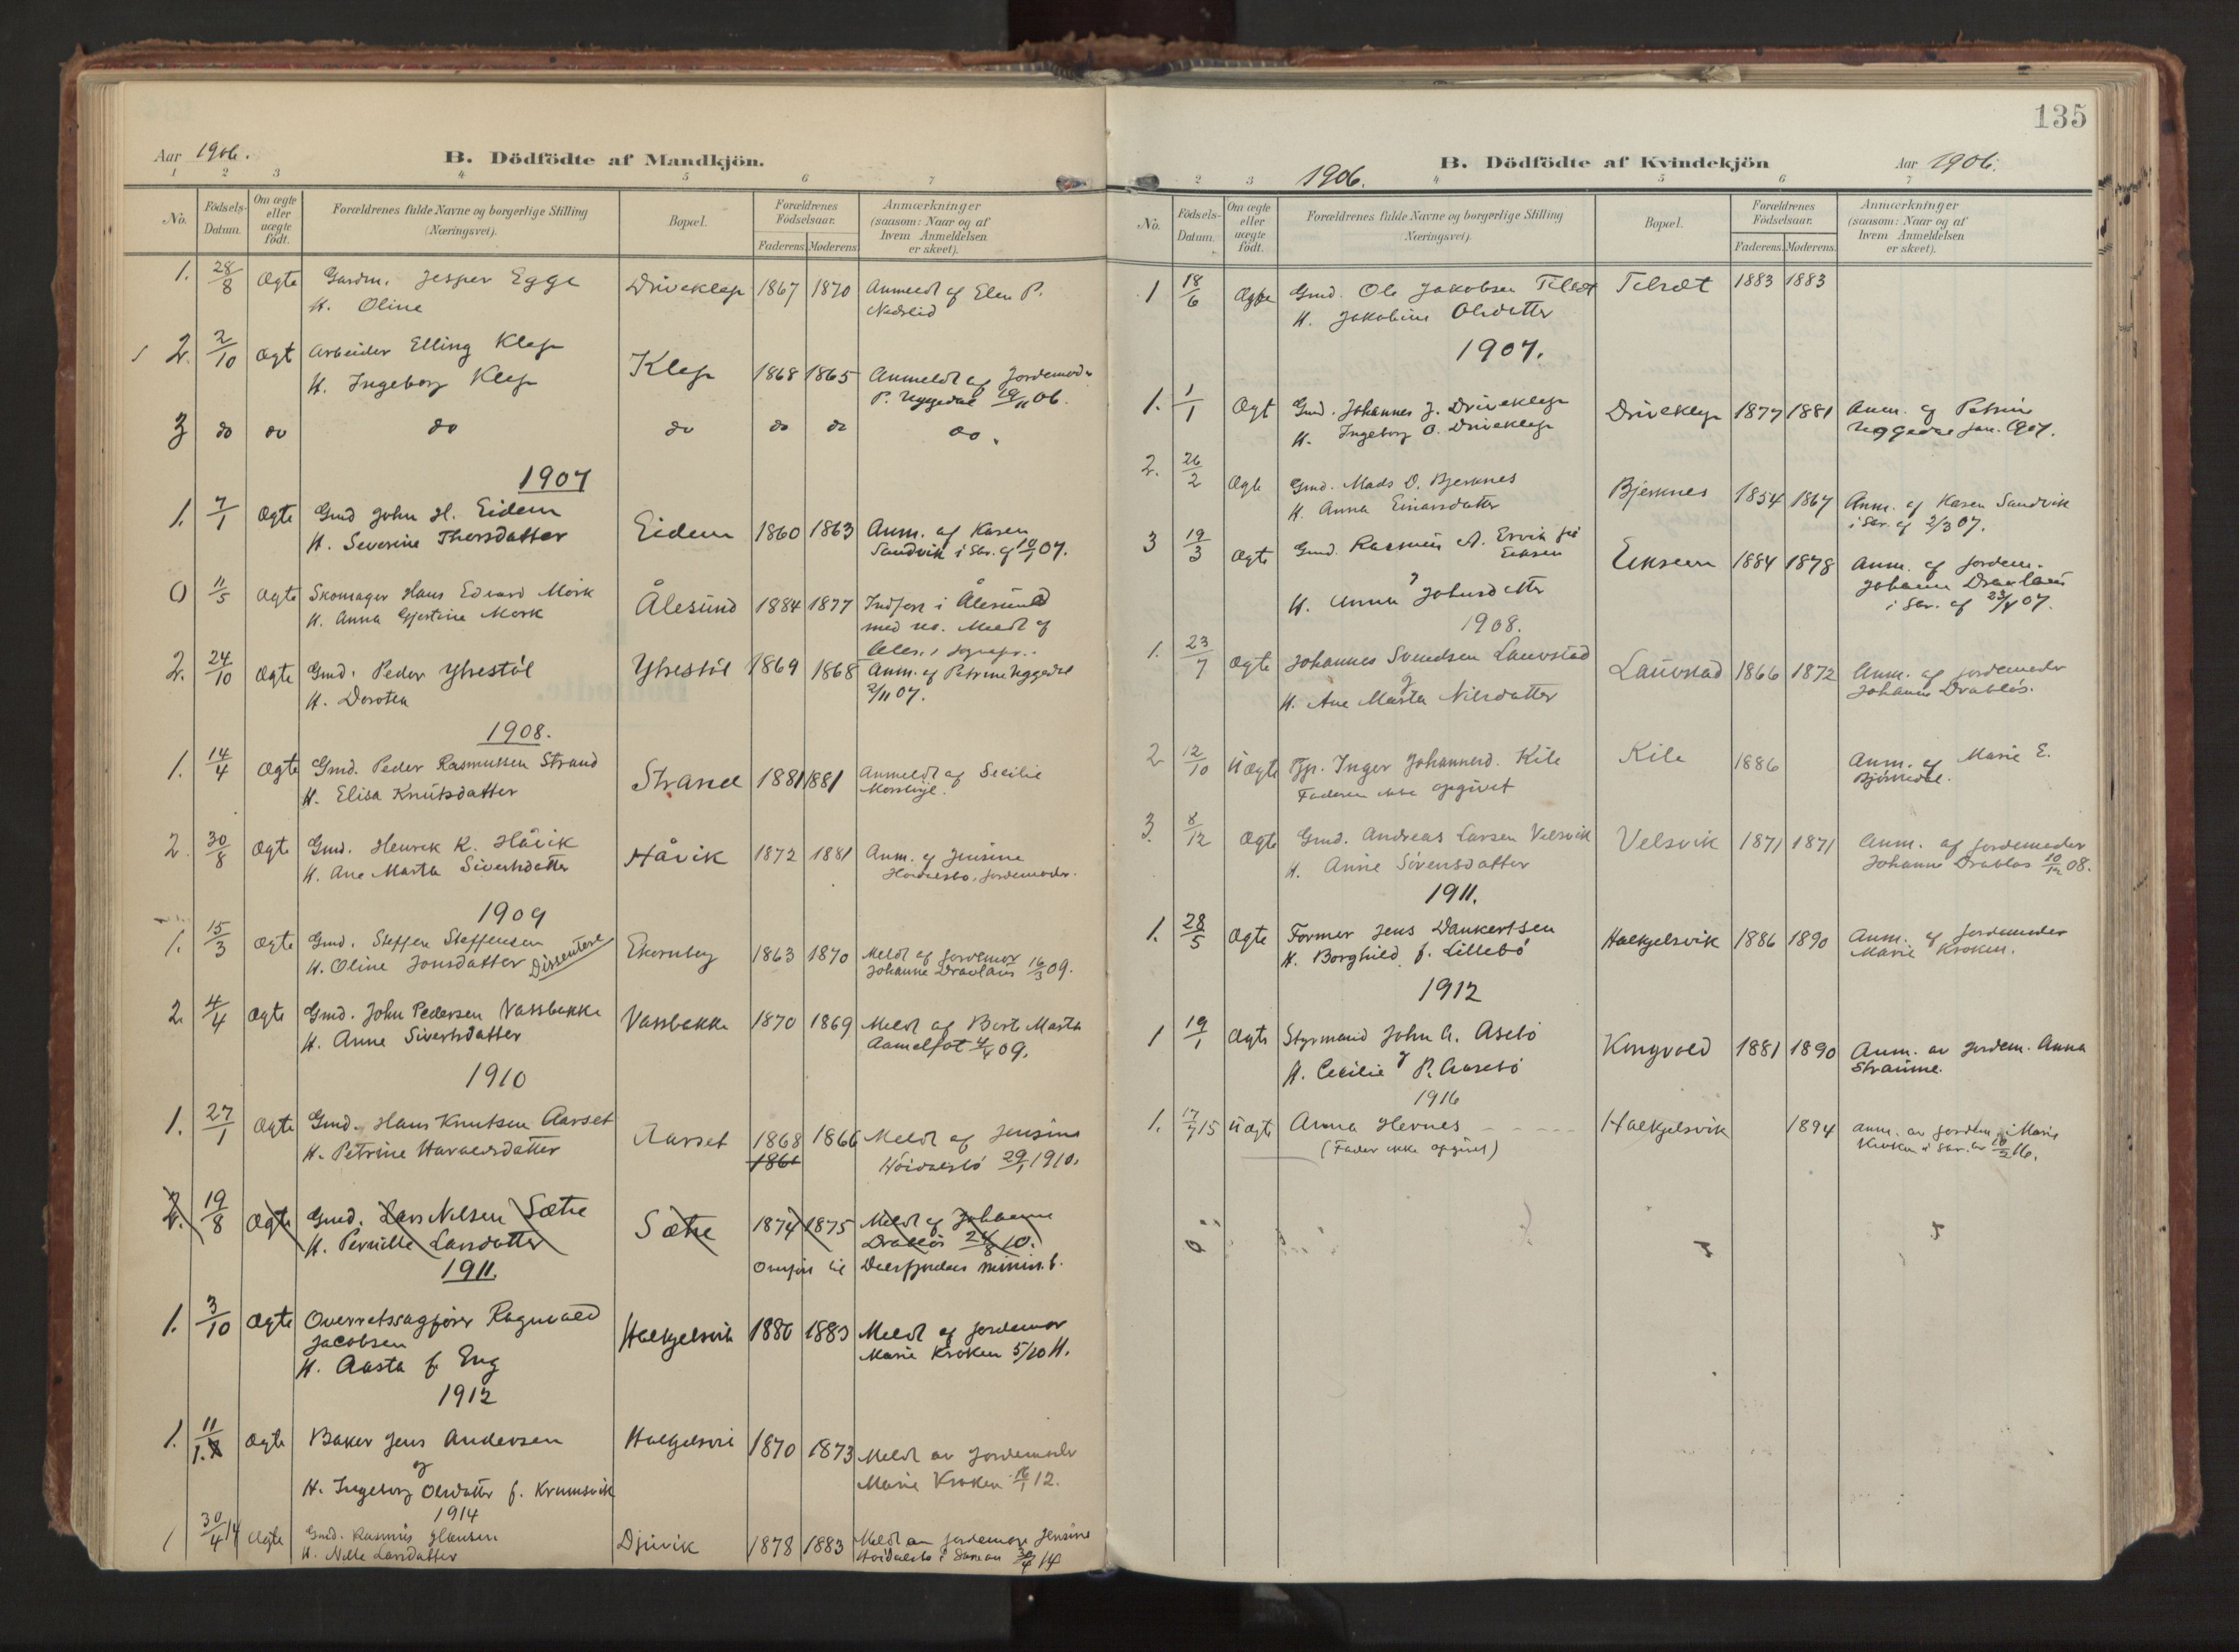 Aar 1906.
B. Dödfödte af Mandkjön.
1 2 3 4 5 6 7
No.
Födsels-
Datum.
Om ægte
eller
uægte
födt.
Forældrenes fulde Navne og borgerlige Stilling
(Næringsvei).
Bopæl.
Forældrenes
Födselsaar.
Faderens. Moderens.
Anmærkninger
(saasom: Naar og af
hvem Anmeldelsen
er skeet).
1. 28/8 Ægte Gaardm. Jesper Egge Driveklep 1867 1870 Anmeldt af Elen P.
H. Oline
2. 2/10 Ægt Arbeider Elling Klep Klep 1868 1865 Anmeldt af Jordemoder
H. Ingeborg Klep P. Uggedal
3 do do do do do do do.
1907
1. 7/1 Ægte Gmd John H. Eidem Eidem 1860 1863 Anm. af Karen
H. Severine Thorsdatter Sandvik i Skr. af 10/1 07.
0 11/5 Ægte Skomager Hans Edvard Mork Ålesund 1884 1877 Indført i Ålesund
H. Anna Gjertine Mork med no. Meldt af
2. 24/10 Ægte Gmd. Peder Ytrestöl Ytrestöl 1869 1868 Anm. af Petrine Uggedal
H. Dorotea 2/11 07.
1908.
1. 14/4 Ægte Gmd. Peder Rasmussen Strand Strand 1881 1881 Anmeldt af Secilie
H. Elisa Knutsdatter
2 30/8 Ægte Gmd. Henrik K. Håvik Håvik 1872 1881 Anm. af Jensine
H. Ane Marta Sivertsdatter Hoidalsbø, Jordemoder.
1909
1. 15/3 Ægte Gmd. Steffen Steffensen Ekornberg 1863 1870 Meldt af Jordemor
H. Oline Jonsdatter Dissentere Johanne Drabløs 16/3 09.
2 4/4 Ægte Gmd. John Pedersen Vassbakke Vassbakke 1870 1869 Meldt af Berte Marta
H. Anne Sivertsdatter Aamelfot 4/4 09.
1910
1. 27/1 Ægte Gmd. Hans Knutsen Aarset Aarset 1868 1866 Meldt af Jensine
H. Petrine Haraldsdatter Höidalsbö 29/1 1910.
2. 19/8 Ægte Gmd. Lars Nilsen Sætre Sætre 1874 1875 Meldt af Johanne
H. Pernille Larsdatter Drabløs 24/8 10.
1911. Overført til Dalsfjordens minist.b.
1. 3/10 Ægte Overretssagfører Ragnvald Halkjelsvik 1880 1883 Meldt af Jordemor
Jacobsen Marie Kroken 5/10 11.
H. Aasta f. Eng
1912
1. 11/1 Ægte Baker Jens Andersen 1870 1873 Meldt av Jordemoder
og
H. Ingeborg Olsdatter f. Krumsvik Marie Kroken 16/1 12.
1914
1 30/4 14 Ægte Gmd. Rasmus Hansen Djuvik 1878 1883 Meldt av Jordemor Jensine
H. Nille Larsdatter Hoidalsbø 30/4 14
135
1906.
B. Dödfödte af Kvindekjön
Aar 1906.
2 3 4 5 6 7
No.
Födsels-
Datum.
Om ægte
eller
uægte
födt.
Forældrenes fulde Navne og borgerlige Stilling
(Næringsvei).
Bopæl.
Forældrenes
Födselsaar.
Faderens. Moderens.
Anmærkninger
(saasom: Naar og af
hvem Anmeldelsen
er skeet).
1 18/6 Ægte Gmd. Ole Jakobsen Tilset Tilset 1883 1883
H. Jakobine Olsdatter
1907.
1. 1/1 Ægt Gmd. Johannes J. Driveklep Driveklep 1877 1881 Anm. af Petrine
H. Ingeborg O. Driveklep Uggedal jan. 1907.
2. 26/2 Ægte Gmd. Mads D. Bjerknes Bjerknes 1854 1867 Anm. af Karen Sandvik
H. Anna Einarsdatter i Skr. af 2/3 07.
3 19/3 Ægte Gmd. Rasmus A. Ervik på Eiksen 1884 1878 Anm. af Jordem.
Eiksen Johanne Drabløs
H. Anna Johnsdatter i Skr. af
1908.
1. 23/7 Ægte Johannes Svendsen Lauvstad Lauvstad 1866 1872 Anm. af Jordemoder
og Johanne Drabløs.
H. Ane Marta Nilsdatter
2 12/10 Uægte Pp. Inger Johannesd. Kile Kile 1886 Anm. af Marie E.
Faderen ikke opgivet Bjørnedal.
3. 8/12 Ægte Gmd. Andreas Larsen Velsvik Velsvik 1871 1871 Anm. af Jordemoder
H. Anne Sörensdatter Johanne Drabløs 10/12 08.
1911.
1. 28/5 Ægte Former Jens Dankertsen Halkjelsvik 1886 1890 Anm. af Jordemoder
H. Borghild f. Lillebö Marie Kroken.
1912
1 19/1 Ægte Styrmand John A. Asebö Kongvold 1881 1890 Anm. av Jordem. Anna
og
H. Cecilie P. Aasebö Straume.
1916
1. 17/7 15 Uægt Anna Hovnes Halkjelsvik 1894 Anm. av Jordem. Marie
(Fader ikke opgivet) Kroken i skr. av 10/2 16.